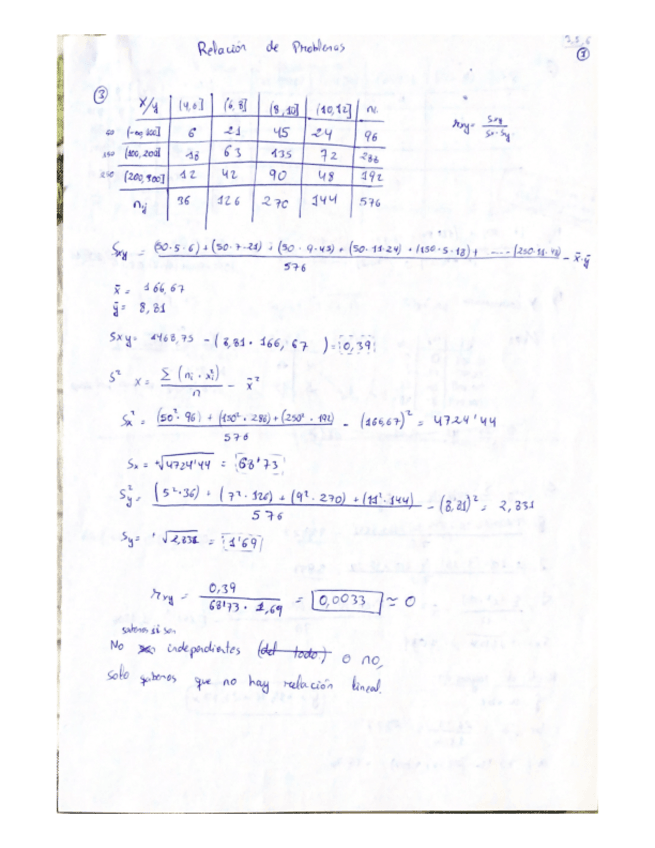 2,5,6
Relación de Problemas
①
③
X/y (4,6] (6,8] (8,10] (10,12] ni.
50 (-∞,100] 6 21 45 24 96
150 (100,200] 18 63 135 72 288
250 (200,300] 12 42 90 48 192
n.j 36 126 270 144 576
rxy = Sxy / Sx·Sy
Sxy = (50·5·6)+(50·7·21)+(50·9·45)+(50·11·24)+(150·5·18)+ ····· (250·11·48) / 576 - x̄·ȳ
x̄ = 166,67
ȳ = 8,81
Sxy = 1468,75 - (8,81 · 166,67) = 0,39
S² x = Σ (ni · xi²) / n - x̄²
Sx² = (50²·96) + (150²·288)+(250²·192) / 576 - (166,67)² = 4724'44
Sx = +√4724'44 = 68'73
Sy² = (5²·36) + (7²·126) + (9²·270) + (11²·144) / 576 - (8,81)² = 2,831
Sy = +√2,831 = 1'69
rxy = 0,39 / 68'73 · 1,69 = 0,0033 ≈ 0
sabemos si son
No son independientes (del todo) o no,
solo sabemos que no hay relación lineal.